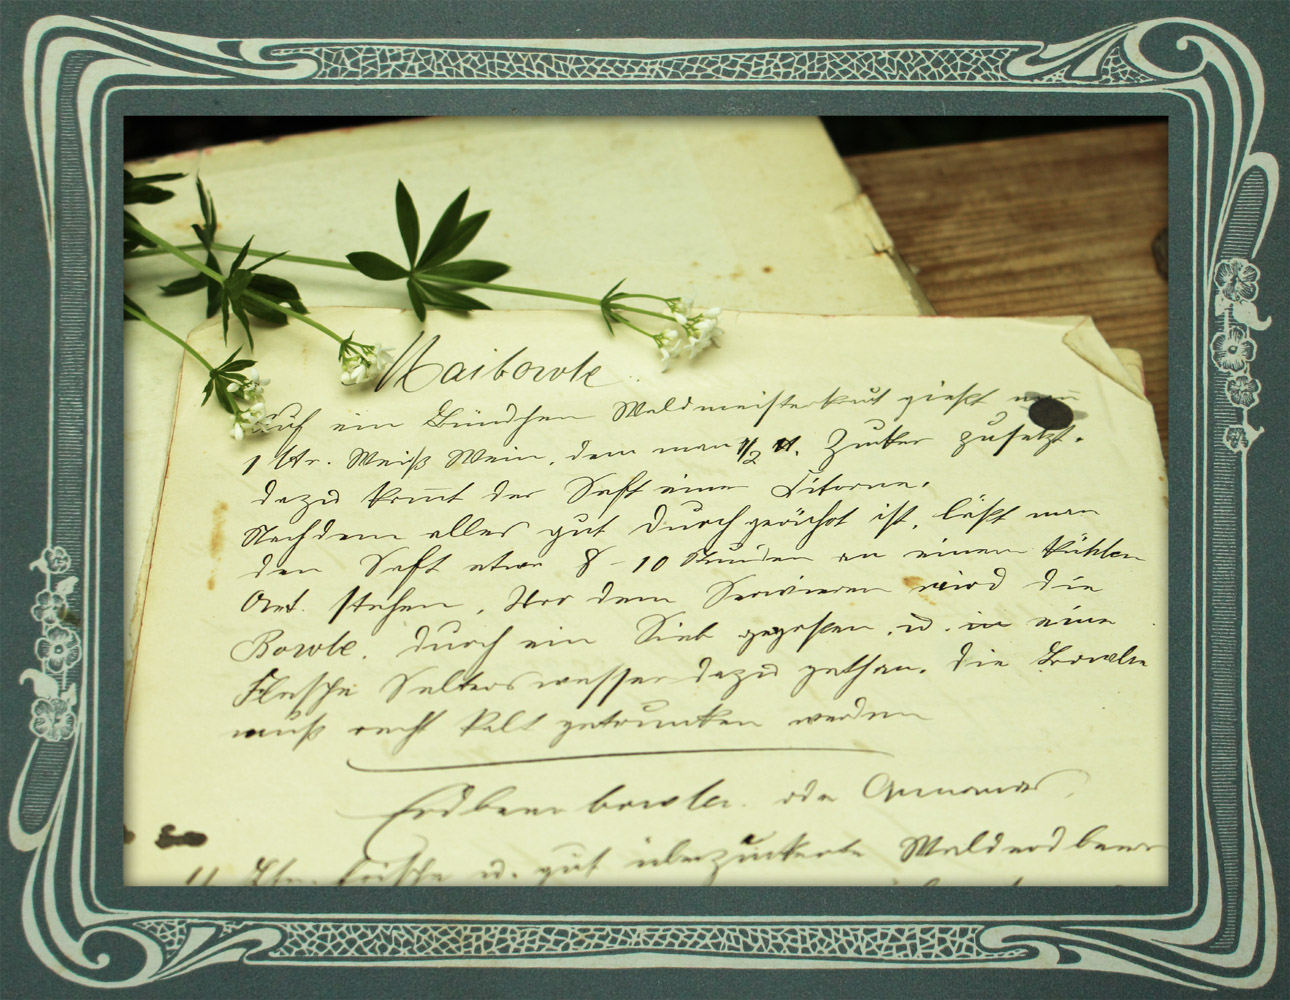 Maibowle.
Auf ein Bündchen Waldmeisterkraut gießt man
1 Ltr. Weiß Wein, dem man 1/2 ℔. Zucker zusetzt.
dazu kommt der Saft einer Citrone.
Nachdem alles gut durchgerührt ist, läßt man
den Saft etwa 8-10 Stunden an einem kühlen
Ort stehen. Vor dem Servieren wird die
Bowle durch ein Sieb gegossen u. in eine
Flasche Selterswasser dazu gethan. die Bowle
muß recht kalt getrunken werden
Erdbeerbowle. oder Annanas
frische u. gut überzuckerte Walderdbeeren